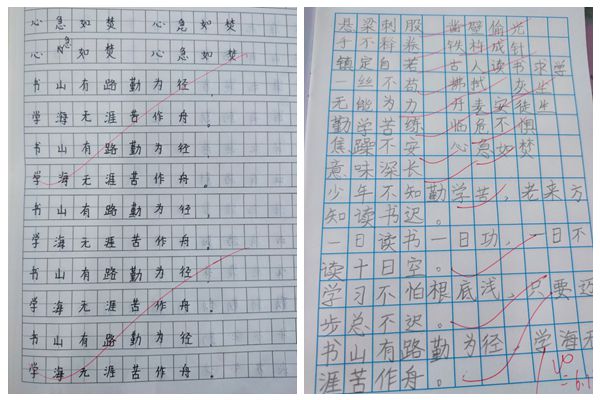 心急如焚 心急如焚
心急如焚 心急如焚
书山有路勤为径，
学海无涯苦作舟。
书山有路勤为径，
学海无涯苦作舟。
书山有路勤为径，
学海无涯苦作舟。
书山有路勤为径，
学海无涯苦作舟。
书山有路勤为径，
学海无涯苦作舟。
悬梁刺股 凿壁偷光
手不释卷 铁杵成针
镇定自若 古人读书求学
一丝不苟 拂拭 灰尘
无能为力 开麦安徒生
勤学苦练 临危不惧
焦躁不安 心急如焚
意味深长
少年不知勤学苦，老来方
知读书迟。
一日读书一日功，一日不
读十日空。
学习不怕根底浅，只要迈
步总不迟。
书山有路勤为径，学海无
涯苦作舟。